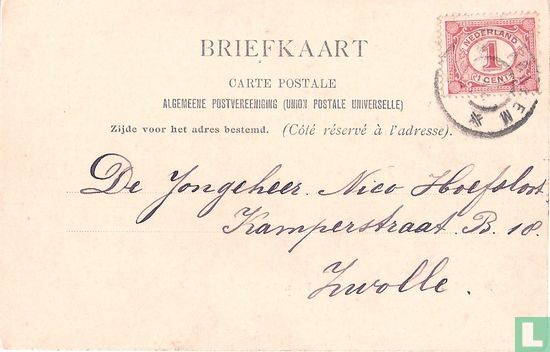 BRIEFKAART
NEDERLAND
1
CENT
CARTE POSTALE
ALGEMEENE POSTVEREENIGING (UNION POSTALE UNIVERSELLE)
Zijde voor het adres bestemd. (Côté réservé à l'adresse).
De Jongeheer. Nico Hoefsloot
Kamperstraat. B. 18.
Zwolle.
catawiki